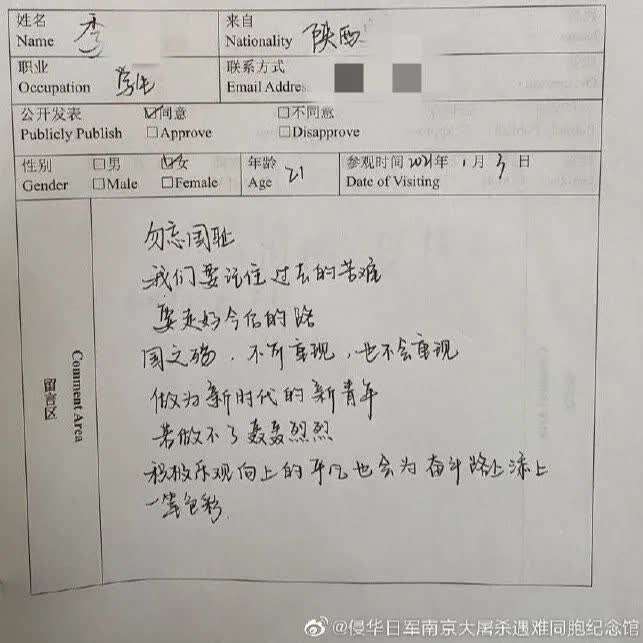 姓名 李 来自 陕西
Name Nationality
职业 学生 联系方式
Occupation Email Addres
公开发表 ☑同意 □不同意
Publicly Publish □Approve □Disapprove
性别 □男 ☑女 年龄 21 参观时间 2021年 1月 3日
Gender □Male □Female Age Date of Visiting
留言区 Comment Area
勿忘国耻
我们要记住过去的苦难
要走好今后的路
国之殇,不可重现,也不会重现
做为新时代的新青年
若做不了轰轰烈烈
积极乐观向上的平凡也会为奋斗路上添上
一笔色彩
@侵华日军南京大屠杀遇难同胞纪念馆